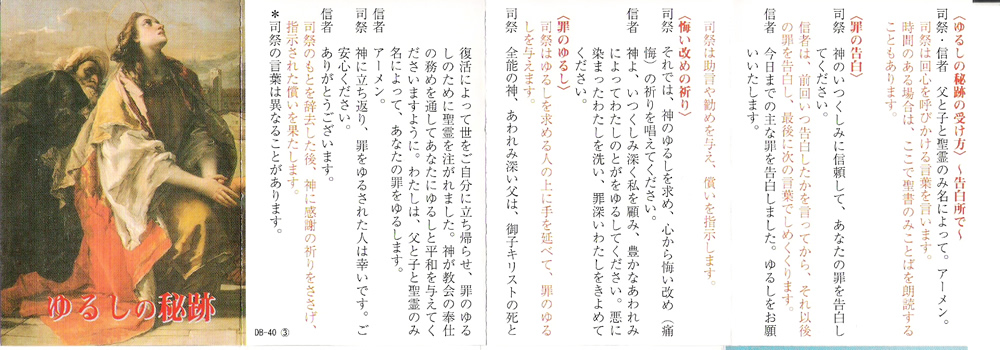 〈ゆるしの秘跡の受け方〉～告白所で～
司祭・信者　父と子と聖霊のみ名によって。アーメン。
司祭は回心を呼びかける言葉を言います。
時間のある場合は、ここで聖書のみことばを朗読する
こともあります。
〈罪の告白〉
司祭　神のいつくしみに信頼して、あなたの罪を告白し
てください。
信者は、前回いつ告白したかを言ってから、それ以後
の罪を告白し、最後に次の言葉でしめくくります。
信者　今日までの主な罪を告白しました。ゆるしをお願
いいたします。
司祭は助言や勧めを与え、償いを指示します。
〈悔い改めの祈り〉
司祭　それでは、神のゆるしを求め、心から悔い改め（痛
悔）の祈りを唱えてください。
信者　神よ、いつくしみ深く私を顧み、豊かなあわれみ
によってわたしのとがをゆるしてください。悪に
染まったわたしを洗い、罪深いわたしをきよめて
ください。
〈罪のゆるし〉
司祭はゆるしを求める人の上に手を延べて、罪のゆる
しを与えます。
司祭　全能の神、あわれみ深い父は、御子キリストの死と
復活によって世をご自分に立ち帰らせ、罪のゆる
しのために聖霊を注がれました。神が教会の奉仕
の務めを通してあなたにゆるしと平和を与えてく
ださいますように。わたしは、父と子と聖霊のみ
名によって、あなたの罪をゆるします。
信者　アーメン。
司祭　神に立ち返り、罪をゆるされた人は幸いです。ご
安心ください。
信者　ありがとうございます。
司祭のもとを辞去した後、神に感謝の祈りをささげ、
指示された償いを果たします。
＊司祭の言葉は異なることがあります。
DB-40 ③
ゆるしの秘跡